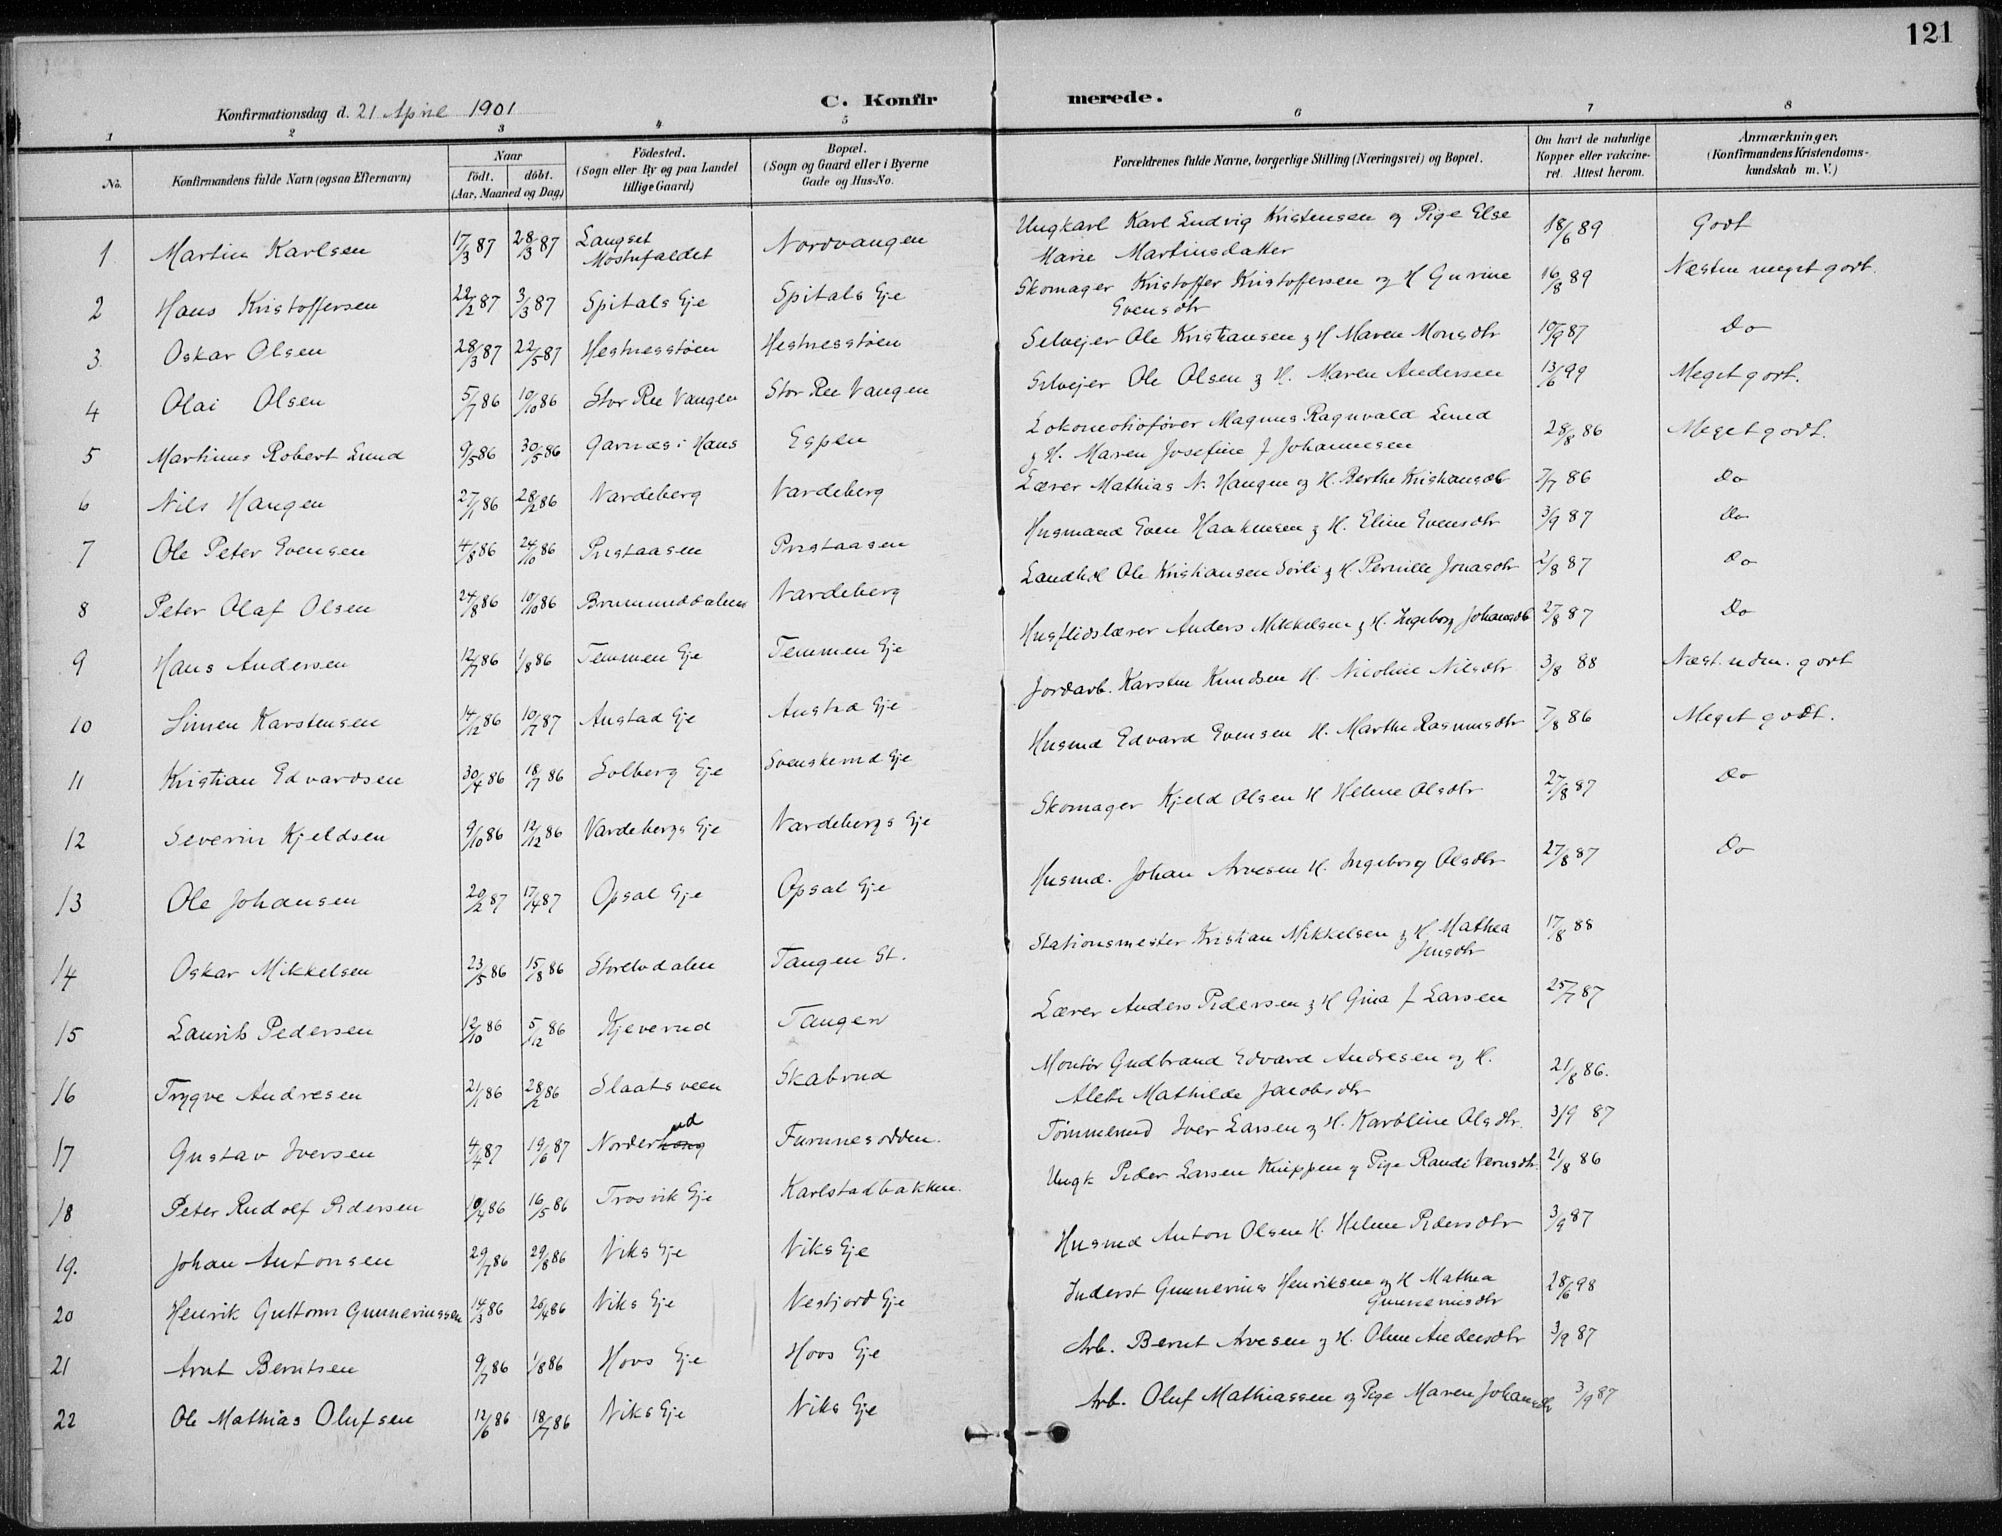 121
Konfirmationsdag d. 21 April 1901
C. Konfirmerede.
1 2 3 4 5 6 7 8
No. Konfirmandens fulde Navn (ogsaa Efternavn) Naar født. døbt. (Aar, Maaned og Dag) Fødested. (Sogn eller By og paa Landet tillige Gaard) Bopæl. (Sogn og Gaard eller i Byerne Gade og Hus-No. Forældrenes fulde Navne, borgerlige Stilling (Næringsvei) og Bopæl. Om havt de naturlige Kopper eller vakcineret. Attest herom. Anmærkninger. (Konfirmandens Kristendomskundskab m. V.)
1 Martin Karlsen 17/3 87 28/3 87 Langset Mostufaldet Nordvangen Ungkarl Karl Ludvig Kristensen og Pige Else Marie Martinsdatter 18/6 89 Godt
2 Hans Kristoffersen 22/2 87 3/3 87 Spitals Eje Spitals Eje Skomager Kristoffer Kristoffersen og H Gurine Evensdtr 16/8 89 Næsten meget godt.
3 Oskar Olsen 28/3 87 22/5 87 Hestnesstøen Hestnesstøen Selvejer Ole Kristiansen & H Maren Monsdtr 10/9 87 Do
4 Olai Olsen 5/7 86 10/10 86 Stor Ree Vangen Stor Ree Vangen Selvejer Ole Olsen & H. Maren Andersen 13/6 99 Meget godt.
5 Martinus Robert Lund 9/5 86 30/5 86 Garnæs i Hans Espen Lokomotivfører Magnus Ragnvald Lund & H. Maren Josefine f Johannesen 28/8 86 Meget godt.
6 Nils Haugen 27/1 86 28/2 86 Vardeberg Vardeberg Lærer Mathias N. Haugen og H. Berthe Kristiansdtr 2/7 86 Do
7 Ole Peter Evensen 4/8 86 24/10 86 Pristaasen Pristaasen Husmand Even Haakensen & H. Eline Evensdtr 3/9 87 Do
8 Peter Olaf Olsen 24/8 86 10/10 86 Brummunddalen Vardeberg Landhdl Ole Kristiansen Sørli & H. Pernille Jonasdtr 2/8 87 Do
9 Hans Andersen 12/7 86 1/8 86 Temmen Eje Temmen Eje Husflidslærer Anders Mikkelsen & H. Ingeborg Johansdtr 27/8 87 Do
10 Simen Karstensen 14/12 86 10/7 87 Austad Eje Austad Eje Jordarb. Karsten Knudsen H. Nicoline Nilsdtr 3/8 88 Næst. udm. godt
11 Kristian Edvardsen 30/4 86 18/7 86 Solberg Eje Svenskerud Eje Husmd Edvard Evensen H. Marthe Rasmusdtr 7/8 86 Meget godt.
12 Severin Kjeldsen 9/10 86 12/12 86 Vardebergs Eje Vardebergs Eje Skomager Kjeld Olsen H Helene Olsdtr 27/8 87 Do
13 Ole Johansen 20/2 87 17/4 87 Opsal Eje Opsal Eje Husmd. Johan Arvesen H. Ingeborg Olsdtr 27/8 87 Do
14 Oskar Mikkelsen 23/5 86 15/8 86 Storelvdalen Tangen St. Stationsmester Kristian Mikkelsen & H. Mathea Jensdtr 17/8 88
15 Laurits Pedersen 12/10 86 5/12 86 Kjeverud Tangen Lærer Anders Pedersen & H Gina f Larsen 25/7 87
16 Trygve Andresen 21/1 86 28/2 86 Slaatsveen Skabrud Montør Gudbrand Edvard Andresen og H. Alette Mathilde Jacobsdtr 21/8 86.
17 Gustav Iversen 4/4 87 19/6 87 Norderhoug ud Furunesodden. Tømmermd Iver Larsen & H. Karoline Olsdtr. 3/9 87
18 Peter Rudolf Pedersen 10/4 86 16/5 86 Trosvik Eje Karlstadbakken. Ungk Peder Larsen Knippen & Pige Randi Vernsdtr. 21/8 86
19. Johan Antonsen 29/7 86 29/8 86 Viks Eje Viks Eje Husmd Anton Olsen H. Helene Pedersdtr 3/9 87
20 Henrik Guttorm Gunneriussen 14/3 86 26/4 86 Viks Eje Vestjord Eje Inderst Gunnerius Henriksen og H Mathea Gunneriusdtr 28/6 98
21 Arnt Berntsen 9/7 86 1/8 86 Hovs Eje Hovs Eje Arb. Bernt Arvesen & H. Oline Andersdtr 3/9 87
22 Ole Mathias Olufsen 12/6 86 18/7 86 Viks Eje Viks Eje Arb. Oluf Mathiassen og Pige Maren Johansdtr 3/9 87